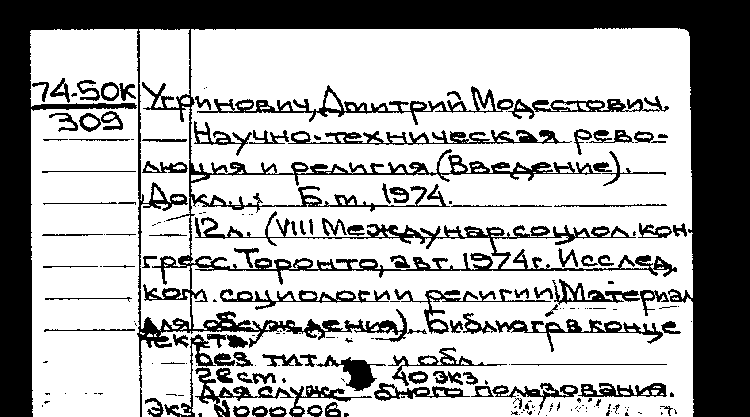 74-50К
309
Угринович, Дмитрий Модестович.
Научно-техническая рево-
люция и религия (Введение).
Докл... Б.м., 1974.
12л. (VIII Междунар. социол. кон-
гресс. Торонто, авг. 1974г. Исслед.
ком. социологии религии) (Материал
для обсуждения). Библиогр в конце
текста.
без тит.л. и обл.
28см. 40 экз.
Для служебного пользования.
Экз. N000006.